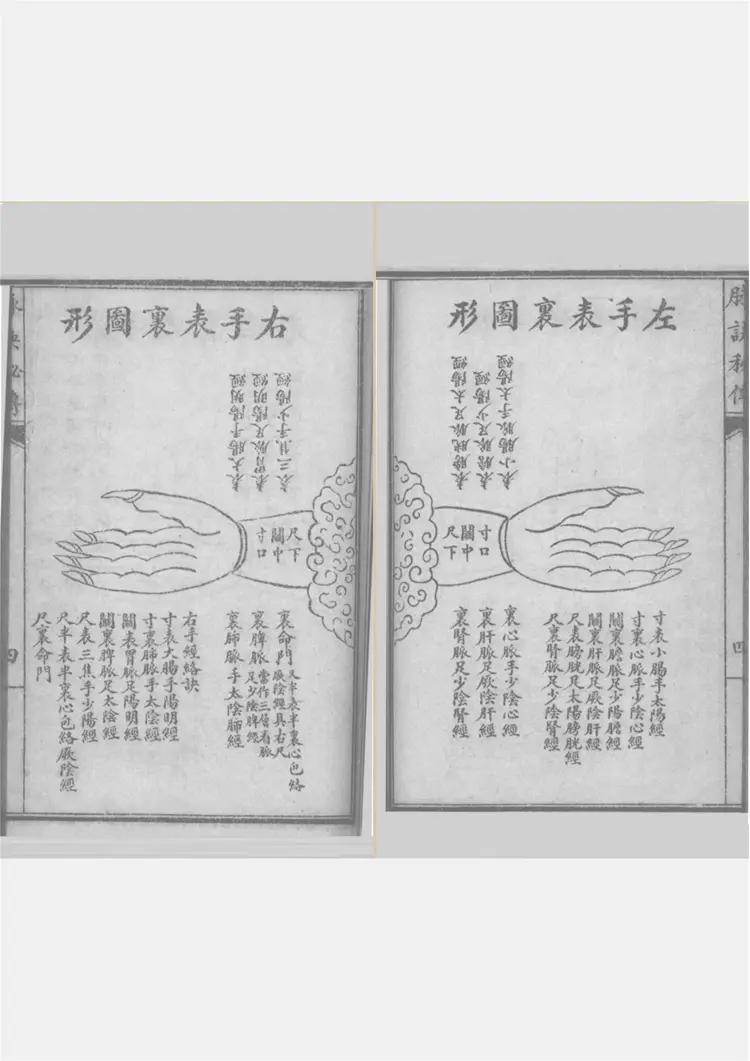 脉訣秘傳
左手表裏圖形
表小腸脉手太陽經
表膽脉足少陽經
表膀胱脉足太陽經
寸口
關中
尺下
寸表小腸手太陽經
寸裏心脈手少陰心經
關裏膽脈足少陽膽經
關裏肝脈足厥陰肝經
尺表膀胱足太陽膀胱經
尺裏腎脈足少陰腎經
裏心脈手少陰心經
裏肝脈足厥陰肝經
裏腎脈足少陰腎經
四
右手表裏圖形
表三焦手少陽經
表胃脉足陽明經
表大腸手陽明經
尺下
關中
寸口
裏命門又半表半裏心包絡
厥陰經具右尺
當作三層看脈
裏脾脈足少陰脾經
裏肺脈手太陰肺經
右手經絡訣
寸表大腸手陽明經
寸裏肺脈手太陰經
關表胃脈足陽明經
關裏脾脈足太陰經
尺表三焦手少陽經
尺半表半裏心包絡厥陰經
尺裏命門
脉訣秘傳
四